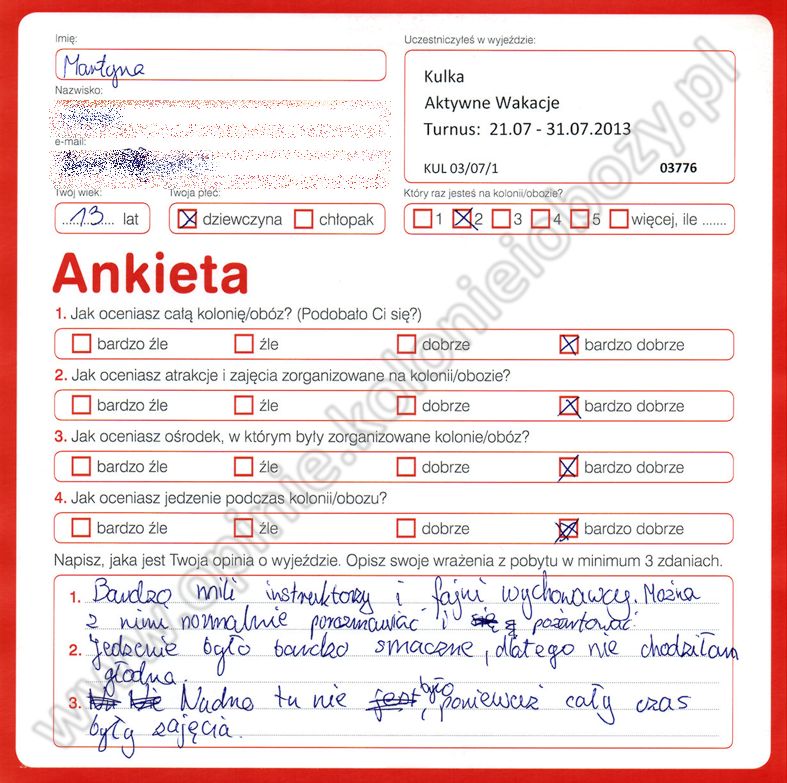 Imię:
Martyna
Uczestniczyłeś w wyjeździe:
Kulka
Aktywne Wakacje
Turnus: 21.07 - 31.07.2013
KUL 03/07/1 03776
Nazwisko:
e-mail:
Twój wiek:
13 lat
Twoja płeć:
dziewczyna chłopak
Który raz jesteś na kolonii/obozie?
1 2 3 4 5 więcej, ile .......
Ankieta
1. Jak oceniasz całą kolonię/obóz? (Podobało Ci się?)
bardzo źle źle dobrze bardzo dobrze
2. Jak oceniasz atrakcje i zajęcia zorganizowane na kolonii/obozie?
bardzo źle źle dobrze bardzo dobrze
3. Jak oceniasz ośrodek, w którym były zorganizowane kolonie/obóz?
bardzo źle źle dobrze bardzo dobrze
4. Jak oceniasz jedzenie podczas kolonii/obozu?
bardzo źle źle dobrze bardzo dobrze
Napisz, jaka jest Twoja opinia o wyjeździe. Opisz swoje wrażenia z pobytu w minimum 3 zdaniach.
1. Bardzo mili instruktorzy i fajni wychowawcy. Można
z nimi normalnie porozmawiać i pożartować.
2. Jedzenie było bardzo smaczne, dlatego nie chodziłam
głodna.
3. Nudno tu nie było, ponieważ cały czas
były zajęcia.
www.opinie.kolonieiobozy.pl